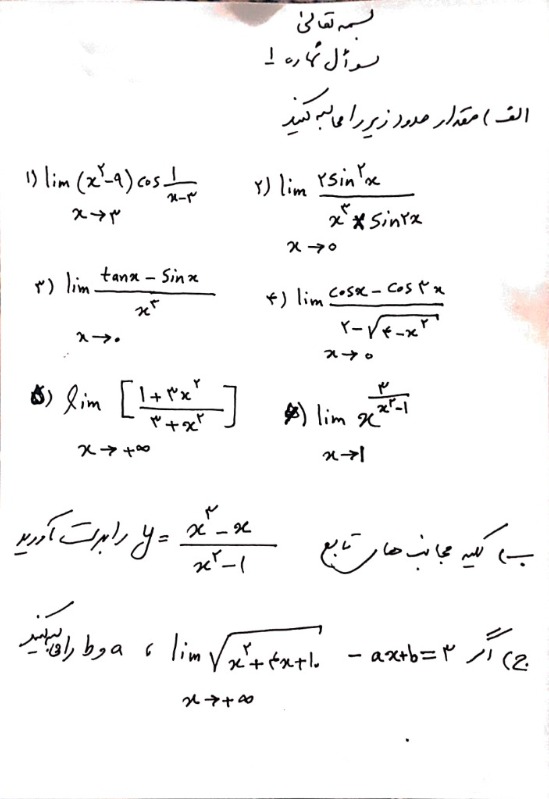 بسمه تعالی
سوال شماره ۱
الف) مقدار حدود زیر را محاسبه کنید
۱) lim (x^۲-۹) cos 1/(x-۳) x→۳
۲) lim ۲sin^۲x / (x^۳ × sin۲x) x→0
۳) lim (tanx - sinx) / x^۳ x→۰
۴) lim (cosx - cos۳x) / (۲-√(۴-x^۲)) x→0
۵) lim [(1+۳x^۲)/(۳+x^۲)] x→+∞
lim x^(۳/(x^۲-1)) x→1
ب) کلیه مجانب های تابع y = (x^۳-x)/(x^۲-1) را بدست آورید
ج) اگر lim √(x^۲+۴x+1۰) - ax+b=۳ x→+∞ ، a و b را محاسبه کنید